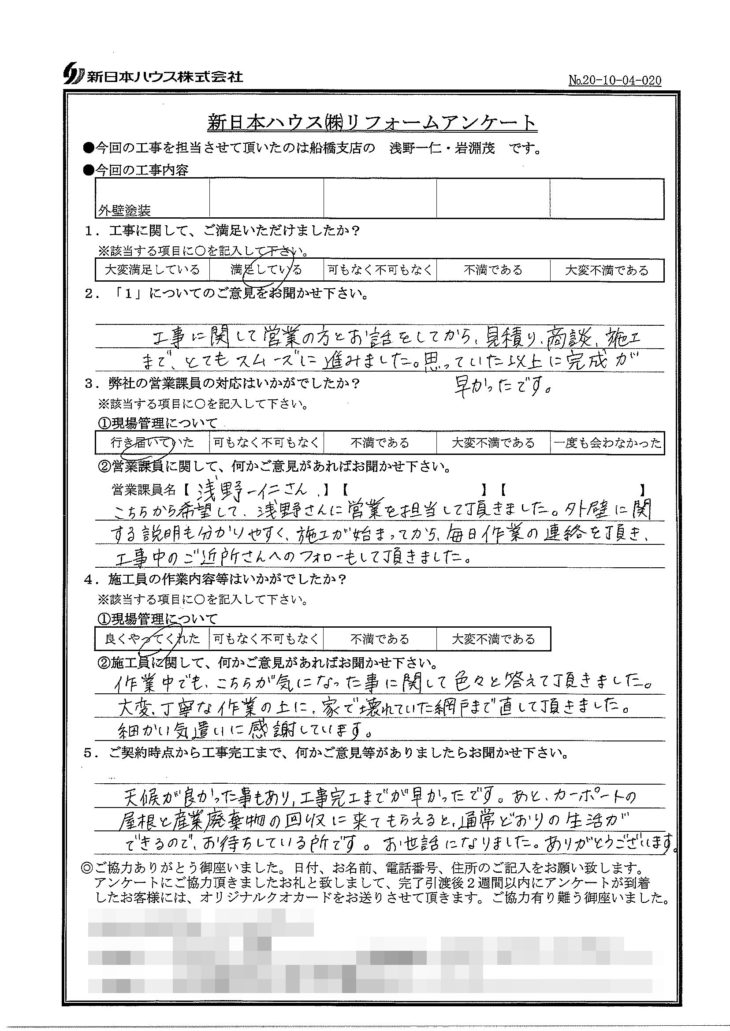 新日本ハウス株式会社
No.20-10-04-020
新日本ハウス㈱リフォームアンケート
●今回の工事を担当させて頂いたのは船橋支店の 浅野一仁・岩淵茂 です。
●今回の工事内容
外壁塗装
1．工事に関して、ご満足いただけましたか？
※該当する項目に○を記入して下さい。
大変満足している 満足している 可もなく不可もなく 不満である 大変不満である
2．「1」についてのご意見をお聞かせ下さい。
工事に関して営業の方とお話をしてから、見積り、商談、施工
まで、とてもスムーズに進みました。思っていた以上に完成が
早かったです。
3．弊社の営業課員の対応はいかがでしたか？
※該当する項目に○を記入して下さい。
①現場管理について
行き届いていた 可もなく不可もなく 不満である 大変不満である 一度も会わなかった
②営業課員に関して、何かご意見があればお聞かせ下さい。
営業課員名【 浅野一仁さん 】【 】【 】
こちらから希望して、浅野さんに営業を担当して頂きました。外壁に関
する説明も分かりやすく、施工が始まってから、毎日作業の連絡を頂き、
工事中のご近所さんへのフォローもして頂きました。
4．施工員の作業内容等はいかがでしたか？
※該当する項目に○を記入して下さい。
①現場管理について
良くやってくれた 可もなく不可もなく 不満である 大変不満である
②施工員に関して、何かご意見があればお聞かせ下さい。
作業中でも、こちらが気になった事に関して色々と答えて頂きました。
大変、丁寧な作業の上に、家で壊れていた網戸まで直して頂きました。
細かい気遣いに感謝しています。
5．ご契約時点から工事完工まで、何かご意見等がありましたらお聞かせ下さい。
天候が良かった事もあり、工事完工までが早かったです。あと、カーポートの
屋根と産業廃棄物の回収に来てもらえると、通常どおりの生活が
できるので、お待ちしている所です。お世話になりました。ありがとうございます。
◎ご協力ありがとう御座いました。日付、お名前、電話番号、住所のご記入をお願い致します。
アンケートにご協力頂きましたお礼と致しまして、完了引渡後2週間以内にアンケートが到着
したお客様には、オリジナルクオカードをお送りさせて頂きます。ご協力有り難う御座いました。